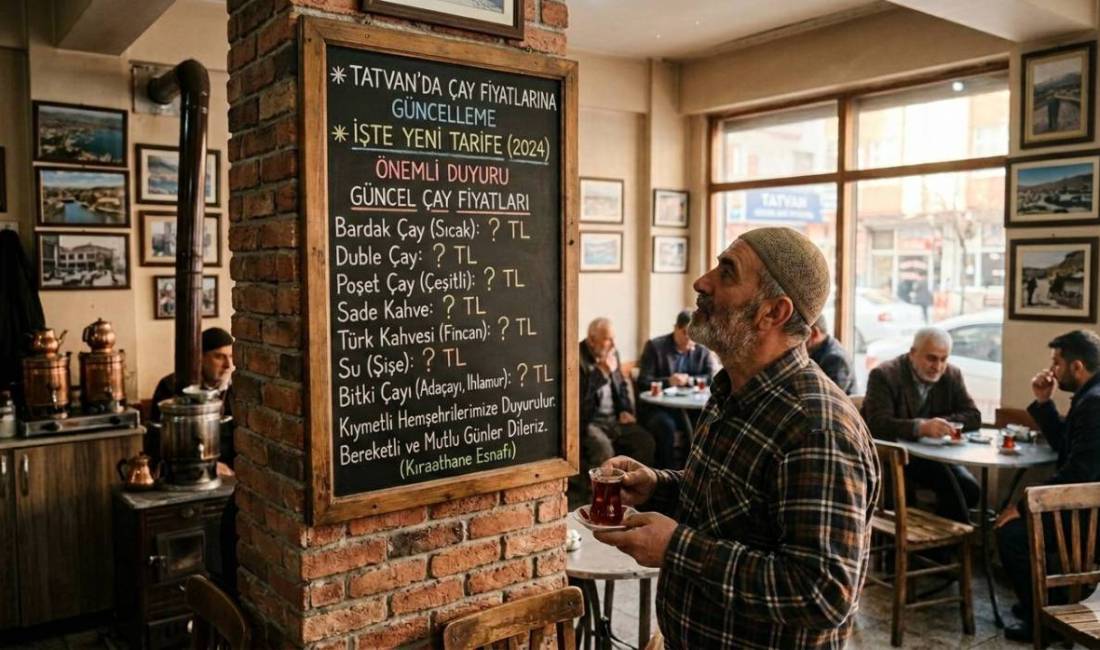 * TATVAN'DA ÇAY FİYATLARINA
GÜNCELLEME
* İŞTE YENİ TARİFE (2024)
ÖNEMLİ DUYURU
GÜNCEL ÇAY FİYATLARI
Bardak Çay (Sıcak): ? TL
Duble Çay: ? TL
Poşet Çay (Çeşitli): ? TL
Sade Kahve: ? TL
Türk Kahvesi (Fincan): ? TL
Su (Şişe): ? TL
Bitki Çayı (Adaçayı, Ihlamur): ? TL
Kıymetli Hemşehrilerimize Duyurulur.
Bereketli ve Mutlu Günler Dileriz.
(Kıraathane Esnafı)
TATVAN